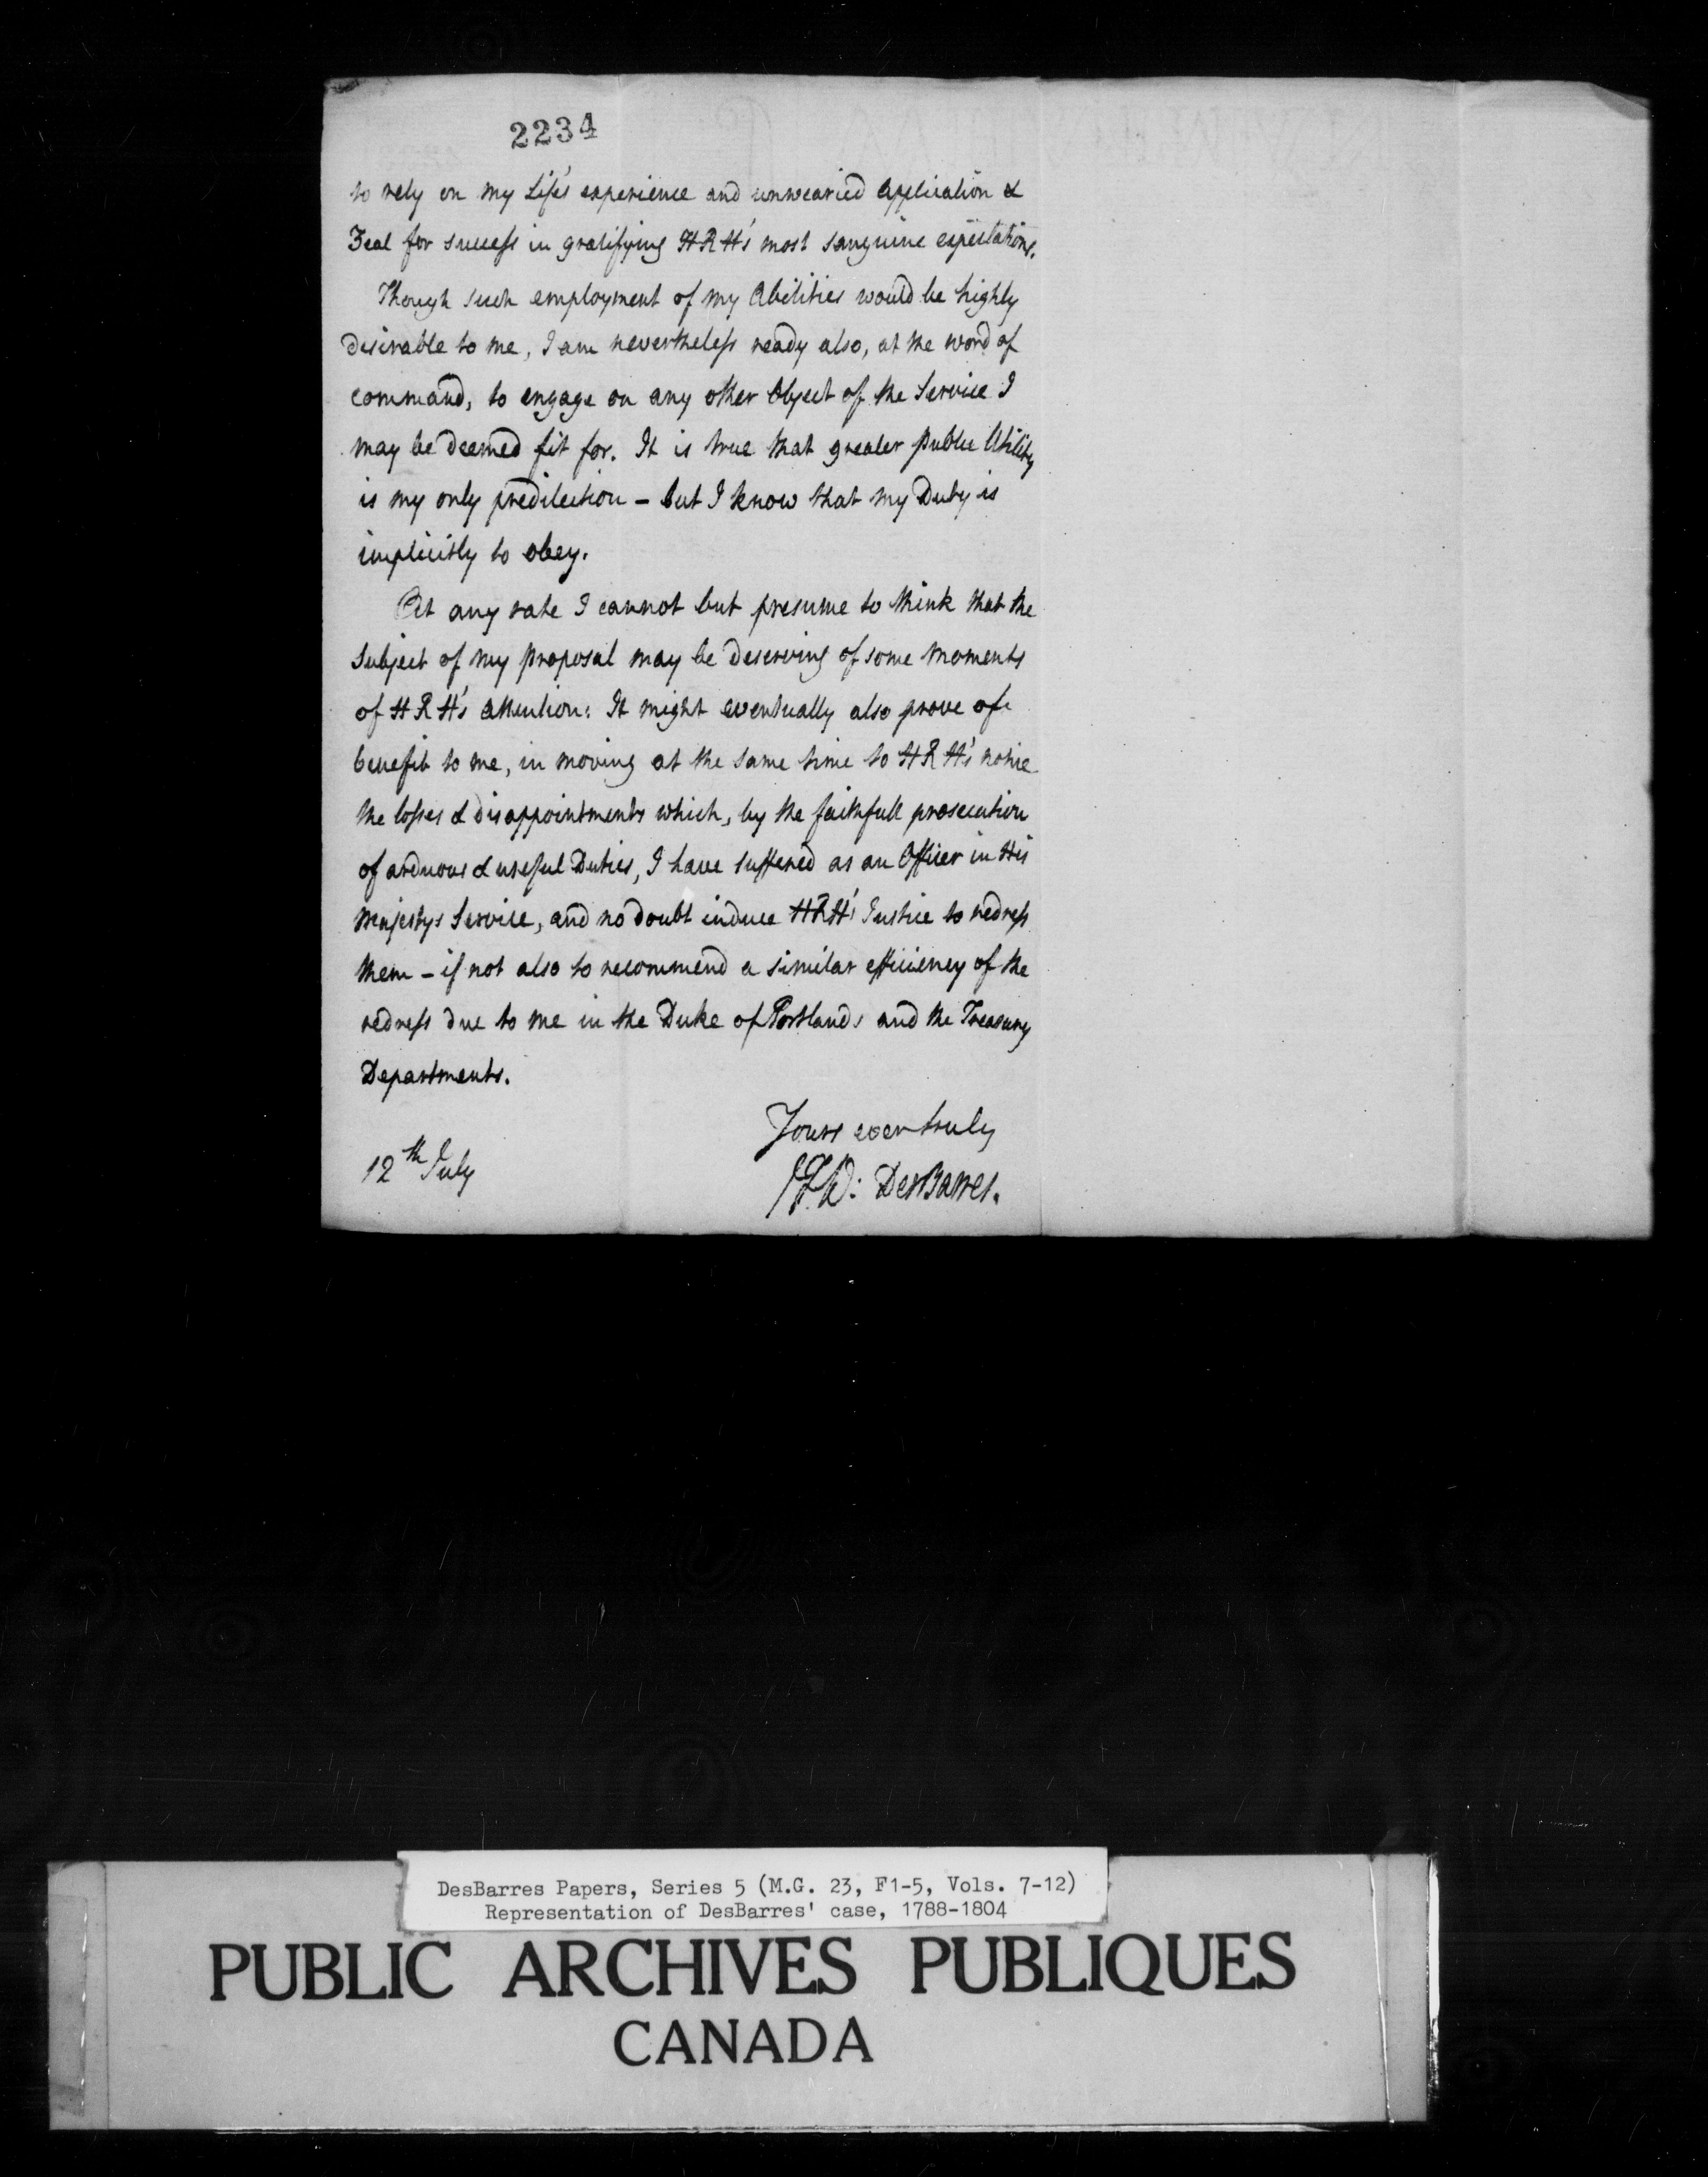 2234
to rely on my Life's experience and unwearied Application &
Zeal for success in gratifying HRH's most sanguine expectations.
Though such employment of my Abilities would be highly
desirable to me, I am nevertheless ready also, at the word of
command, to engage on any other Object of the Service I
may be deemed fit for. It is true that greater public Utility
is my only predilection - but I know that my Duty is
implicitly to obey.
At any rate I cannot but presume to think that the
subject of my proposal may be deserving of some moments
of HRH's attention: It might eventually also prove of
benefit to me, in moving at the same time to HRH's notice
the losses & disappointments which, by the faithfull prosecution
of arduous & useful Duties, I have suffered as an Officer in His
Majestys Service, and no doubt induce HRH's Justice to redress
them - if not also to recommend a similar efficiency of the
redress due to me in the Duke of Portlands and the Treasury
Departments.
Yours ever truly
12th July
J.F.W: DesBarres.
DesBarres Papers, Series 5 (M.G. 23, F1-5, Vols. 7-12)
Representation of DesBarres' case, 1788-1804
PUBLIC ARCHIVES PUBLIQUES
CANADA